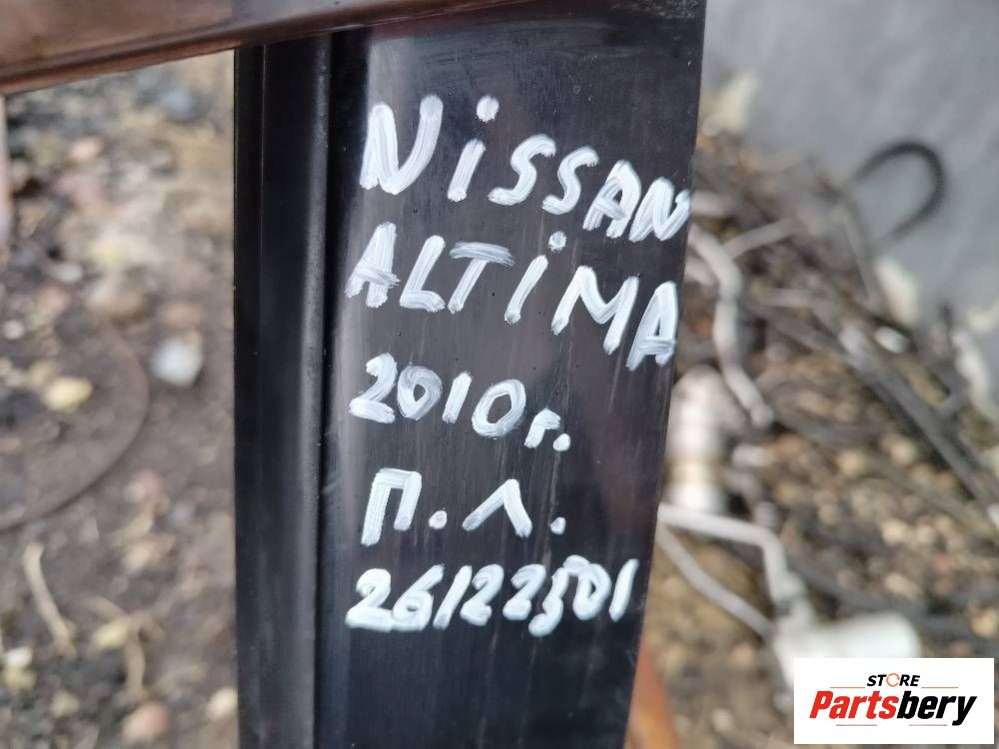 NiSSAN
ALTiMA
2010г.
П.Л.
26122501
STORE
Partsbery